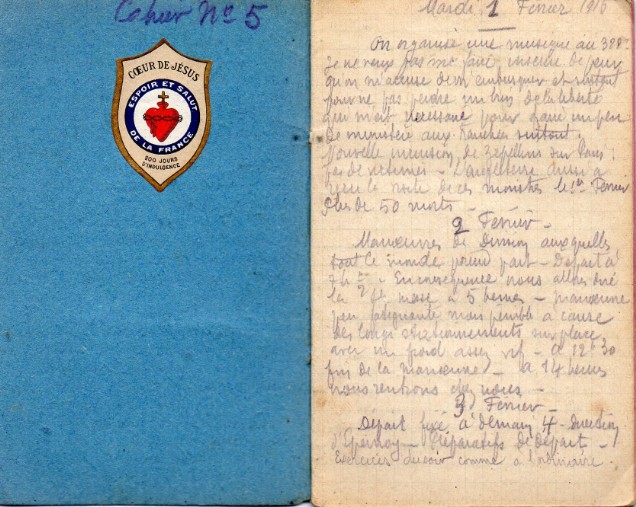 Cahier No 5
CŒUR DE JÉSUS
ESPOIR ET SALUT
DE LA FRANCE
200 JOURS
D'INDULGENCE
Mardi 1 Février 1916
On organise une musique au 328
Je ne veux pas me faire inscrire de peur
qu'on m'accuse de m'embusquer et surtout
pour ne pas perdre un brin de la liberté
qui m'est nécessaire pour faire un peu
de ministère aux tranchées surtout.
Nouvelle incursion de Zeppelins sur Paris
pas de victimes - L'Angleterre aussi a
reçu la visite de ces monstres le 1er Février
Plus de 50 morts -
2 Février -
Manœuvres de Division auxquelles
tout le monde prend part - Départ à
7h 1/2 - En conséquence nous allons dire
la messe à 5 heures - manœuvre
peu fatiguante mais pénible à cause
des longs stationnements sur place
avec un froid assez vif - à 12h30
fin de la manœuvre - à 14 heures
nous rentrons chez nous -
3 Février -
Départ fixé à demain 4 - direction
d'Épernay - Préparatifs de départ -
Exercices du soir comme à l'ordinaire.